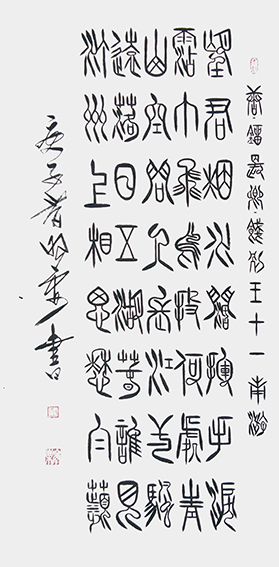 唐鎦長卿餞別王十一南游
望君烟水闊揮手淚
霑巾飛鳥没何處青
山空問人長江一颿
遠落日五湖春誰見
汀州上相思愁白蘋
庚子春書